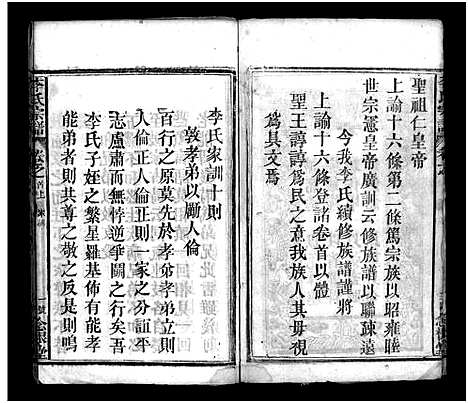 聖祖仁皇帝
上諭十六條第二條篤宗族以昭雍睦
世宗憲皇帝廣訓云修族譜以聯疎遠
今我李氏續修族譜謹將
上諭十六條登諸卷首以體
聖王諄諄為民之意我族人其毋視
為具文焉
李氏家訓十則
敦孝弟以勵人倫
百行之原莫先於孝弟孝弟立則
人倫正人倫正則一家之分誼平
志慮肅而無悖逆爭鬪之行矣吾
李氏子姪之繁星羅基佈有能孝
能弟者則共尊之敬之反是則
李氏宗譜